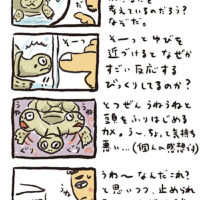 考えているのだろう?
なぞだ。
そーっとゆびを
近づけるとなぜか
すごい反応する
びっくりしてるのか?
とつぜんうねうねと
頭をふりはじめる
カメ。う〜、ちょっと気持ち
悪い…(個人の感想です)
うわ〜なんだこれ?
と思いつつ、止められ